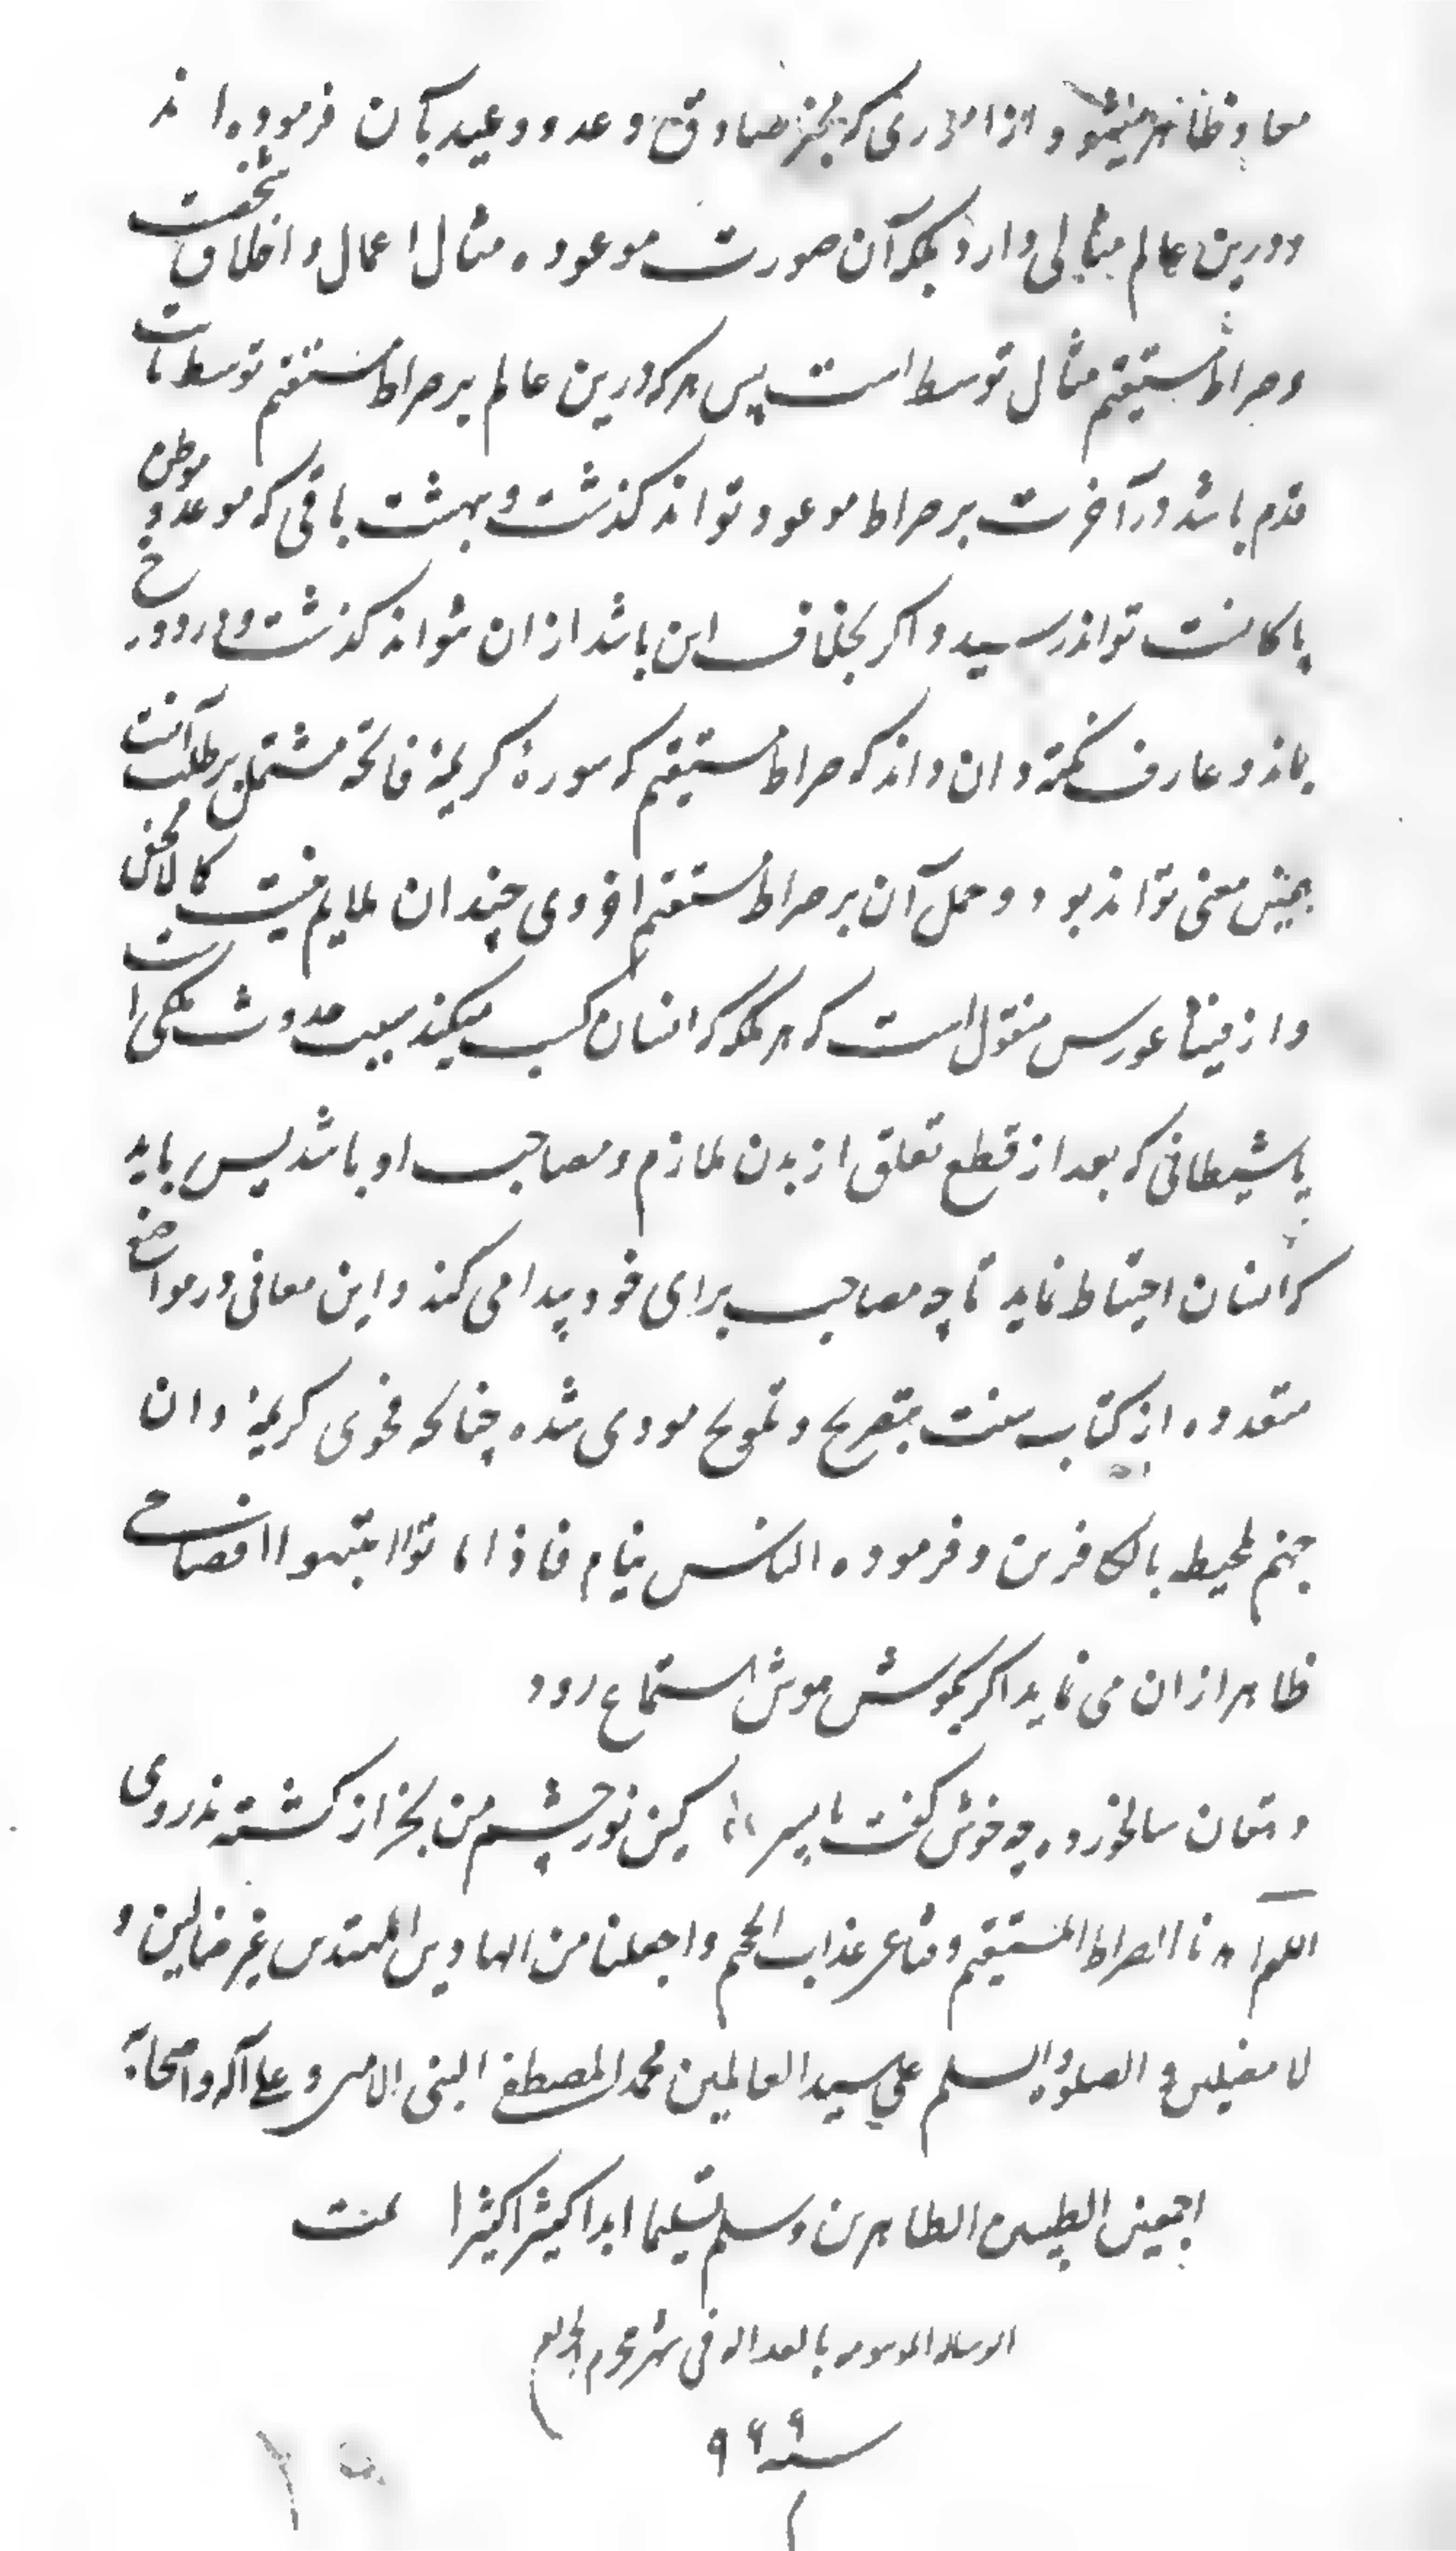 معاد ظاهر میشود از امری که مخبر صادق وعد و وعید بآن فرموده اند
درین عالم مثالی دارد بلکه آن صورت موعوده مثال اعمال و اخلاق شخصست
و صراط مستقیم مثال توسط است پس هرکه درین عالم بر صراط مستقیم توسط ثابت
قدم باشد در آخرت بر صراط موعود تواند کذشت و بهشت باقی که موعد و موطن
پاکانست تواند رسید و اکر بخلاف این باشد از ان نتواند کذشت و در دوزخ
بماند و عارف نکته دان داند که صراط مستقیم که سورهٔ کریمهٔ فاتحه مشتمل بر طلب آنست
بهمین معنی تواند بود و حمل آن بر صراط مستقیم اخروی چندان ملایم نیست کما لا یخفی
و از فیثاغورس منقول است که هر ملکه که انسان کسب میکند سبب حدوث ملکی است
یا شیطانی که بعد از قطع تعلق از بدن ملازم و مصاحب او باشد پس باید
که انسان احتیاط نماید تا چه مصاحب برای خود پیدا می کند و این معانی در مواضع
متعدده از کتاب سنت بتصریح و تلویح مودی شده چنانکه فحوی کریمهٔ و ان
جهنم لمحیطه بالکافرین و فرموده الناس نیام فاذا ماتوا انتبهوا افصاحی
ظاهر از ان می نماید اکر بکوش هوش استماع رود
دهقان سالخورده چه خوش کفت با پسر کین نور چشم من بجز از کشته ندروی
اللهم اهدنا الصراط المستقیم وقنا عذاب الجحیم واجعلنا من الهادین المهتدین غیر ضالین و
لا مضلین و الصلوة والسلم علی سید العالمین محمد المصطفی النبی الامین و علی آله واصحابه
اجمعین الطیبین الطاهرین وسلم تسلیما ابدا کثیرا کثیرا تمت
الرساله الموسومه بالعداله فی شهر محرم الحرام
سنه ۹۶۹